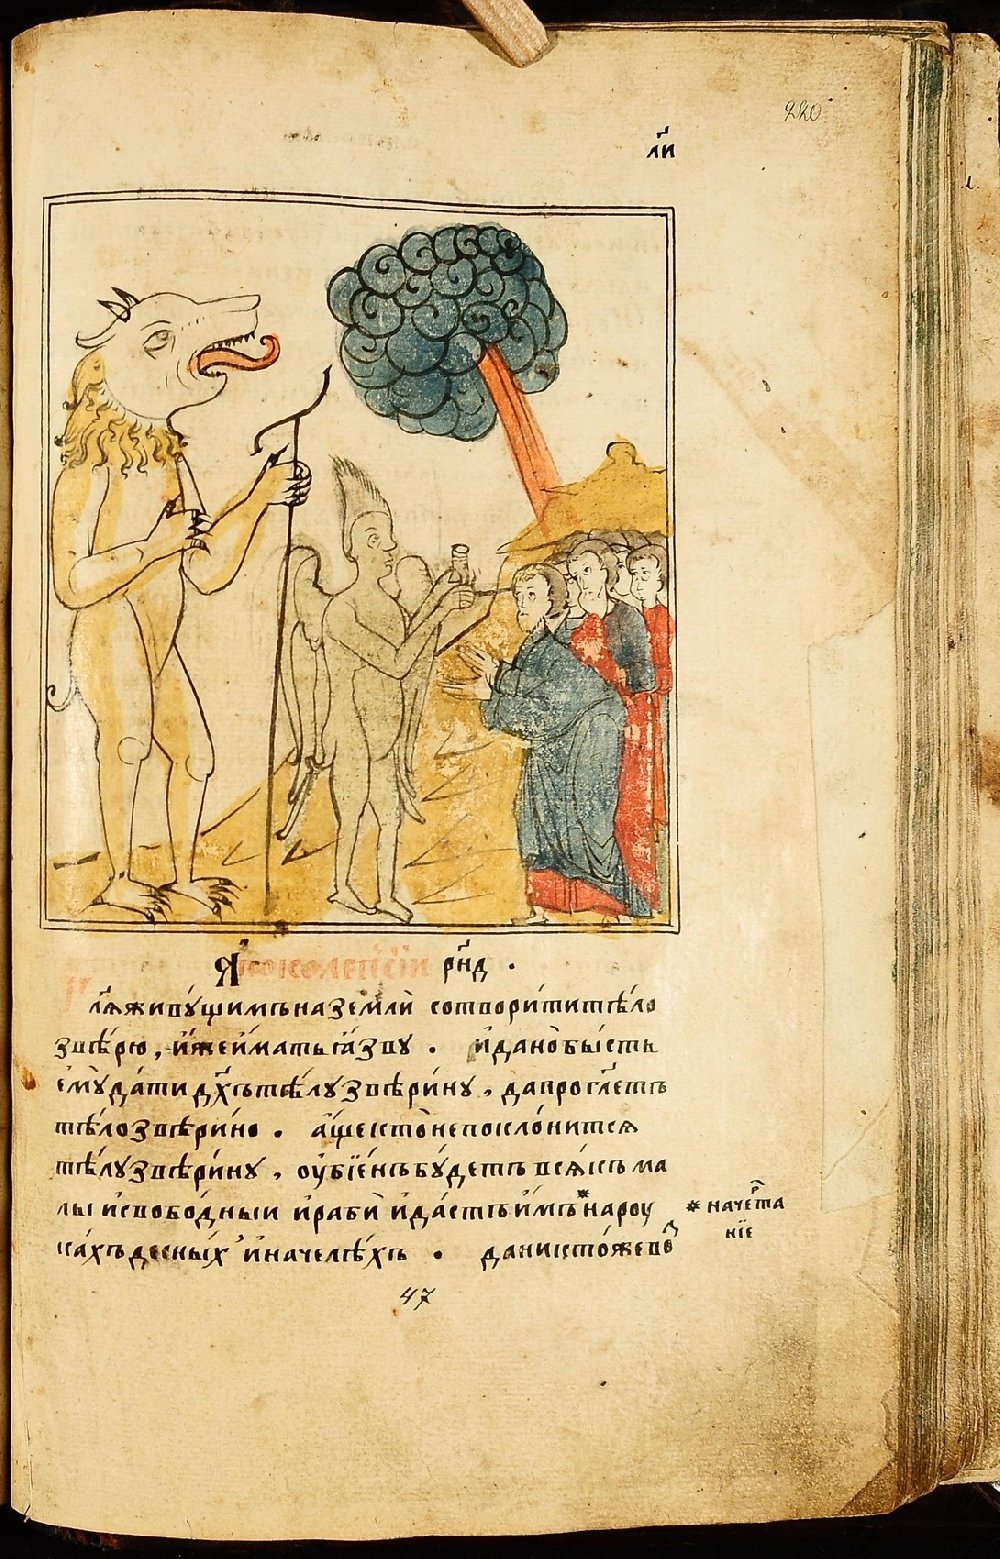 220
ли
Апокалепсіи рнд .
глѧ живꙋщимъ на земли сотворити тѣло
звѣрю, иже имать ꙗзвꙋ . и дано бысть
емꙋ дати дхъ тѣлꙋ звѣринꙋ, да проглетъ
тѣло звѣрино . аще кто не поклонитсѧ
тѣлꙋ звѣринꙋ, оубіенъ будетъ всѧкъ ма
лы и свободныи и раби и дастъ имъ * на роу
ках десных и на челѣхъ . да никтоже вод
* начерта
ніе
47